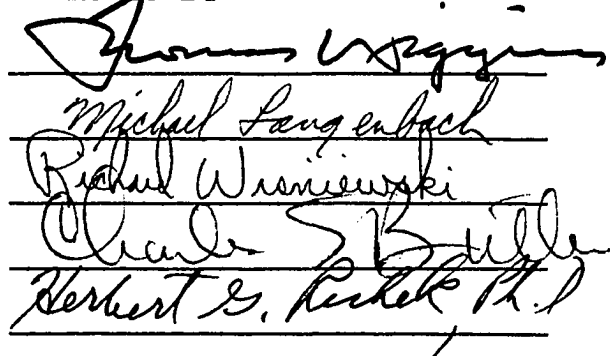 Thomas Wiggins
Michael Langenbach
Richard Wisniewski
Charles E Butler
Herbert G.